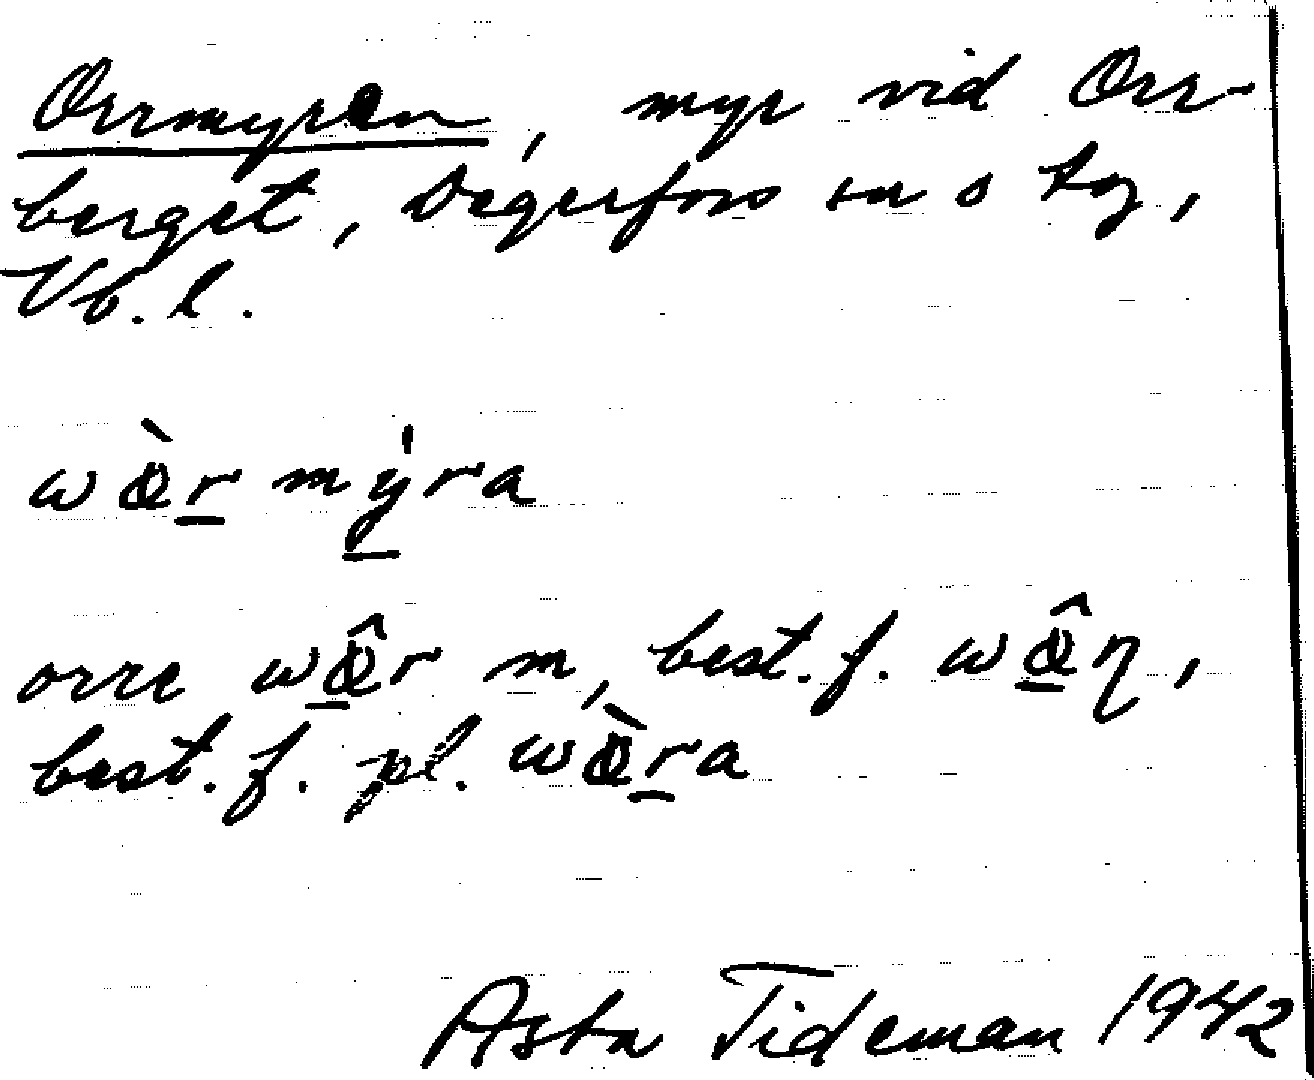 Orrmyren, myr vid Orr-
berget, Degerfors sn o tg,
Vb. l.
wɷ̀r mýra
orre wɷ̂r m, best. f. wɷ̂η,
best. f. pl. wɷ̀ra
Asta Tideman 1942